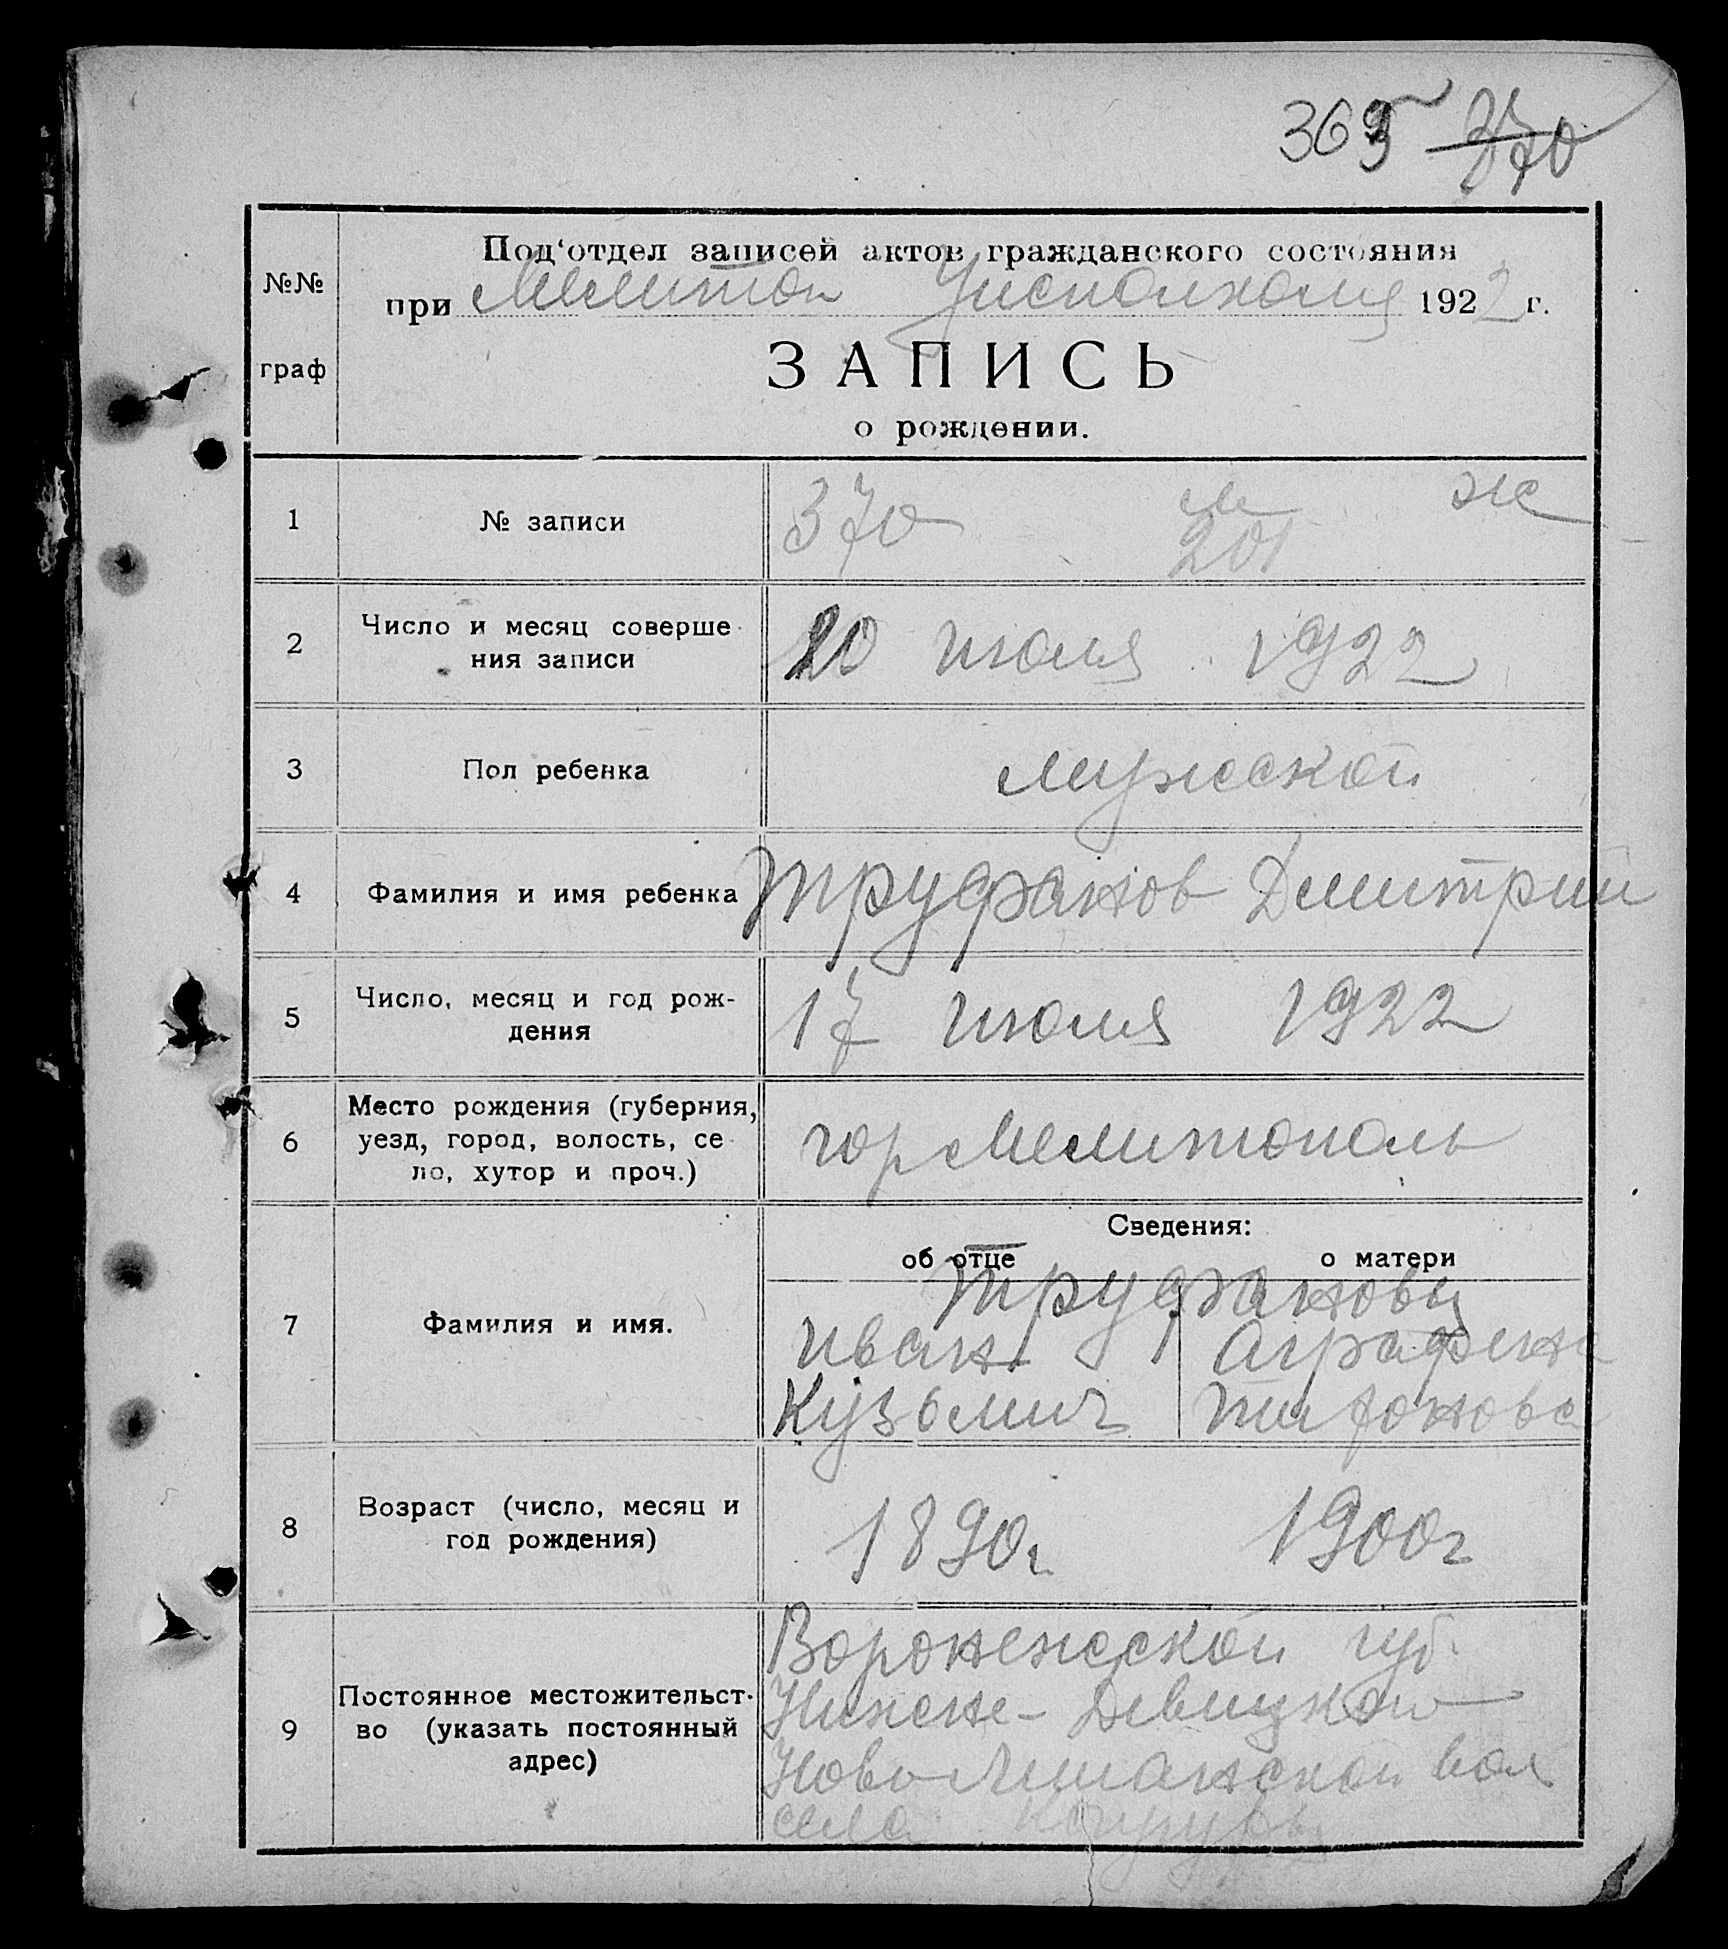 369 370
Под‘отдел записей актов гражданского состояния
№№
при Мелитоп Уисполкома 1922 г.
граф
ЗАПИСЬ
о рождении.
1 № записи 370 м ж
201
2 Число и месяц соверше-
ния записи
20 июля 1922
3 Пол ребенка мужской
4 Фамилия и имя ребенка Труфанов Дмитрий
5 Число, месяц и год рож-
дения
17 июля 1922
6 Место рождения (губерния,
уезд, город, волость, се-
ло, хутор и проч.)
гор Мелитополь
Сведения:
об отце о матери
7 Фамилия и имя.
Труфановы
Иван Аграфена
Кузьмич
8 Возраст (число, месяц и
год рождения)
1890г 1900г
9 Постоянное местожительст-
во (указать постоянный
адрес)
Воронежской губ.
Нижне-Девицкой
Ново вол
села